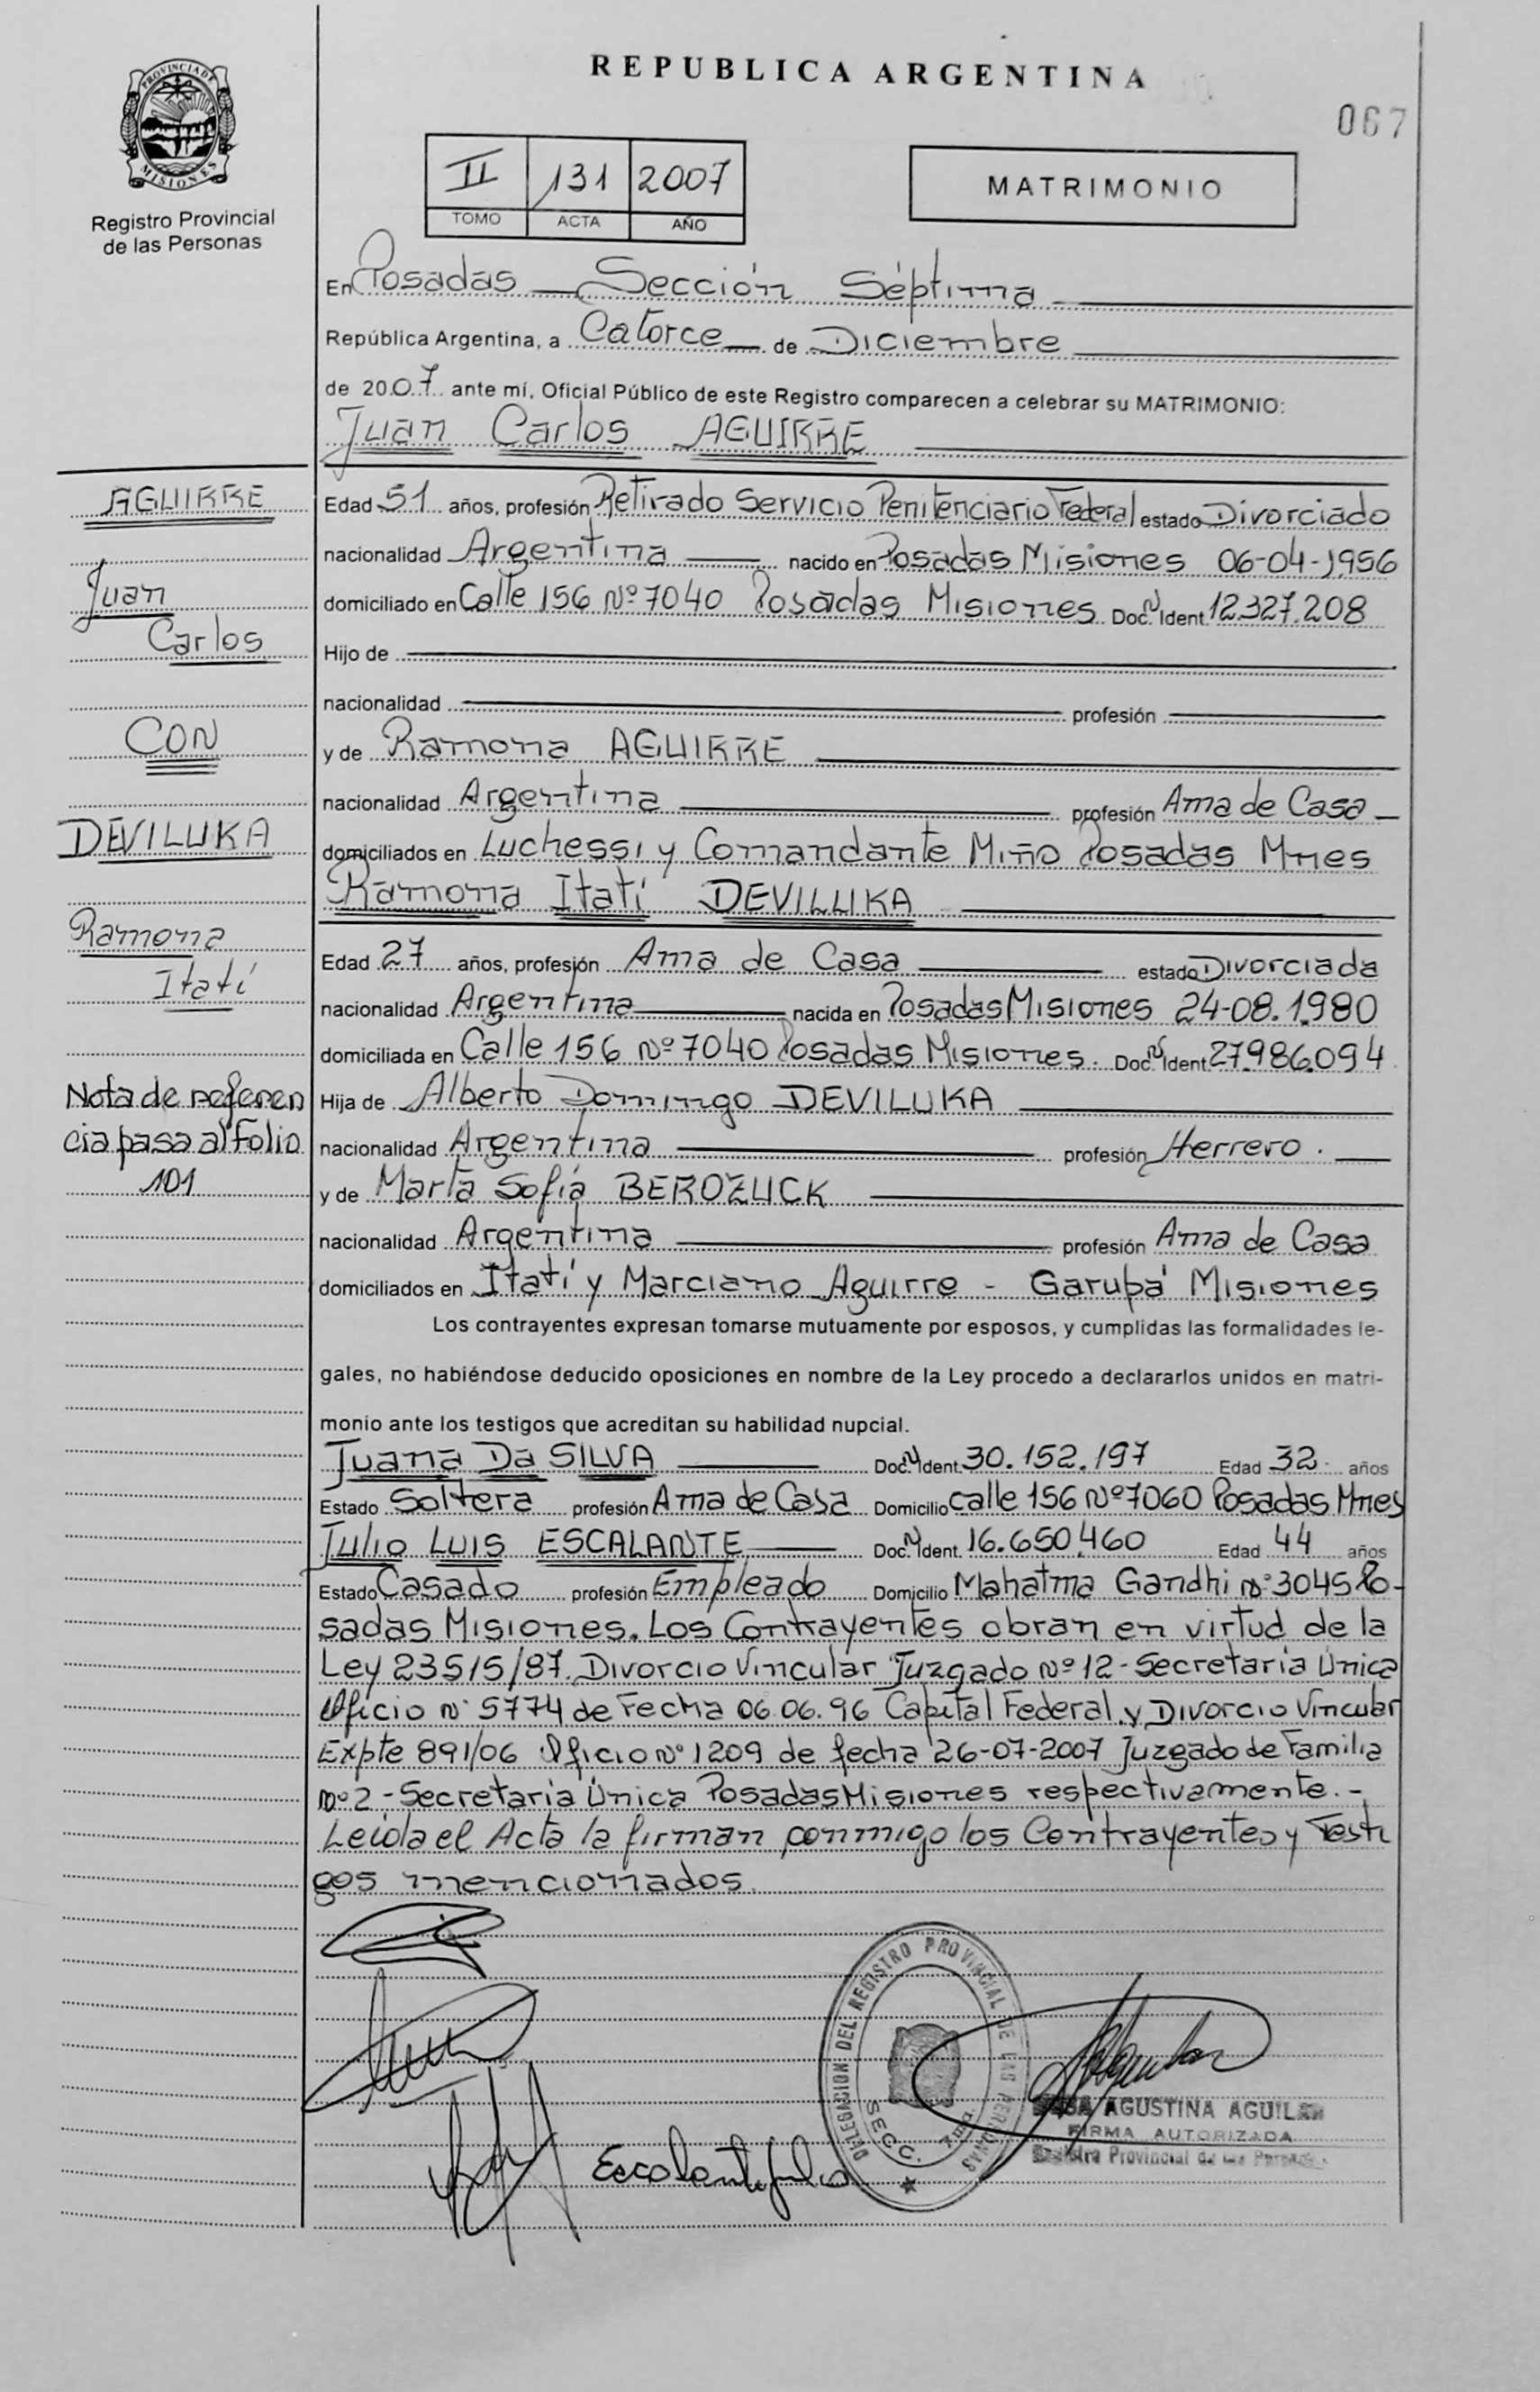 REPUBLICA ARGENTINA
067
PROVINCIA DE
MISIONES
Registro Provincial
de las Personas
II 131 2007
TOMO ACTA AÑO
MATRIMONIO
En Posadas Sección Séptima
República Argentina, a Catorce de Diciembre
de 2007 ante mí, Oficial Público de este Registro comparecen a celebrar su MATRIMONIO:
Juan Carlos AGUIRRE
AGUIRRE
Juan
Carlos
CON
DEVILUKA
Ramona
Itatí
Nota de referen
cia pasa al folio
101
Edad 51 años, profesión Retirado Servicio Penitenciario Federal estado Divorciado
nacionalidad Argentina nacido en Posadas Misiones 06-04-1956
domiciliado en Calle 156 Nº 7040 Posadas Misiones Doc. N Ident. 12.327.208
Hijo de
nacionalidad profesión
y de Ramona AGUIRRE
nacionalidad Argentina profesión Ama de Casa
domiciliados en Luchessi y Comandante Miño Posadas Mnes
Ramona Itatí DEVILUKA
Edad 27 años, profesión Ama de Casa estado Divorciada
nacionalidad Argentina nacida en Posadas Misiones 24-08.1980
domiciliada en Calle 156 Nº 7040 Posadas Misiones. Doc. N Ident. 27.986.094
Hija de Alberto Domingo DEVILUKA
nacionalidad Argentina profesión Herrero.
y de Marta Sofia BEROZUCK
nacionalidad Argentina profesión Ama de Casa
domiciliados en Itatí y Marciano Aguirre - Garupá Misiones
Los contrayentes expresan tomarse mutuamente por esposos, y cumplidas las formalidades le-
gales, no habiéndose deducido oposiciones en nombre de la Ley procedo a declararlos unidos en matri-
monio ante los testigos que acreditan su habilidad nupcial.
Juana Da SILVA Doc. N Ident. 30.152.197 Edad 32 años
Estado Soltera profesión Ama de Casa Domicilio calle 156 Nº 7060 Posadas Mnes
Julio LUIS ESCALANTE Doc. N Ident. 16.650.460 Edad 44 años
Estado Casado profesión Empleado Domicilio Mahatma Gandhi Nº 3045 Po-
sadas Misiones. Los Contrayentes obran en virtud de la
Ley 23515/87. Divorcio Vincular Juzgado Nº 12 - Secretaría Única
Oficio Nº 5774 de Fecha 06.06.96 Capital Federal. y Divorcio Vincular
Expte 891/06 Oficio Nº 1209 de fecha 26-07-2007 Juzgado de Familia
Nº 2 - Secretaría Única Posadas Misiones respectivamente. -
Leida el Acta la firman conmigo los Contrayentes y Testi
gos mencionados.
Escalante Julio
DELEGACION DEL REGISTRO PROVINCIAL DE LAS PERSONAS
SECC. 7ma.
AGUSTINA AGUILAR
FIRMA AUTORIZADA
Registro Provincial de las Personas